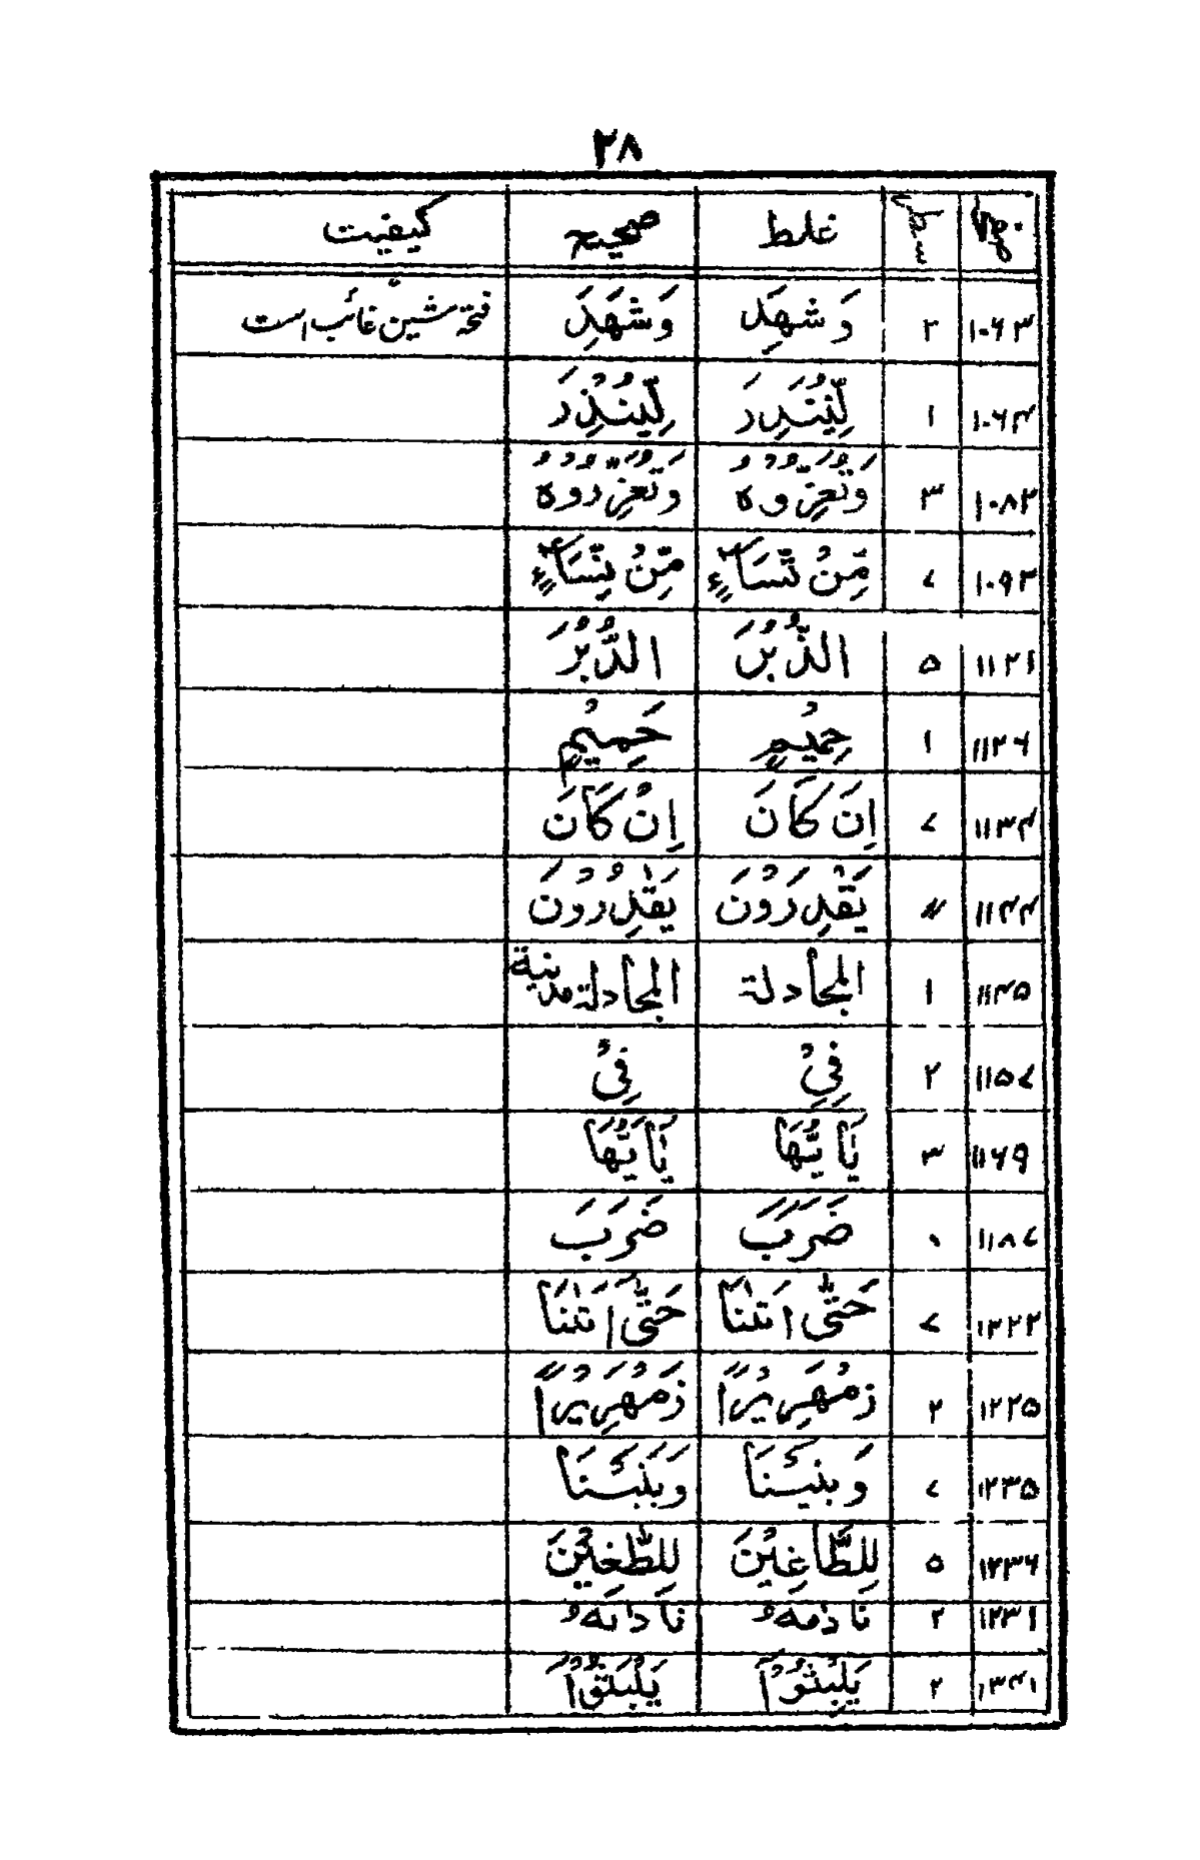 ۲۸
صفحہ سطر غلط صحیح کیفیت
۱۰۶۳ ۲ وَ شهِدَ وَشَهِدَ فتحۂ شین غائب است
۱۰۶۴ ۱ لِّيُنْذِرَ
۱۰۸۲ ۳ وَتُعَزِّرُوْهُ
۱۰۹۳ ۷ مِّنْ نِّسَآءٍ
۱۱۲۱ ۵ الدُّبُرَ
۱۱۲۶ ۱ حِمِيْمٍ حَمِيْمٍ
۱۱۳۴ ۷ اِنَ كَانَ اِنْ كَانَ
۱۱۴۴ ״ يَقْدِرَوْنَ يَقْدِرُوْنَ
۱۱۴۵ ۱ المجادلة المجادلة مدنية
۱۱۵۷ ۲ فِيِْ فِيْ
۱۱۶۹ ۳ يٰٓاَيُّهَا يٰٓاَيُّهَا
۱۱۸۷ ۰ ضَرَبَ ضَرَبَ
۱۲۲۲ ۷ حَتّٰى اَتٰىنَا حَتّٰى اَتٰىنَا
۱۲۲۵ ۲ زمْهَرِيْرًا زَمْهَرِيْرًا
۱۲۳۵ ۷ وَ بنيْنَا وَبَنَيْنَا
۱۲۳۶ ۵ لِلطَّاغِيْنَ لِلطّٰغِيْنَ
۱۲۳۱ ۲
۱۳۴۱ ۲ يَلْبِثُوْا يَلْبَثُوْا